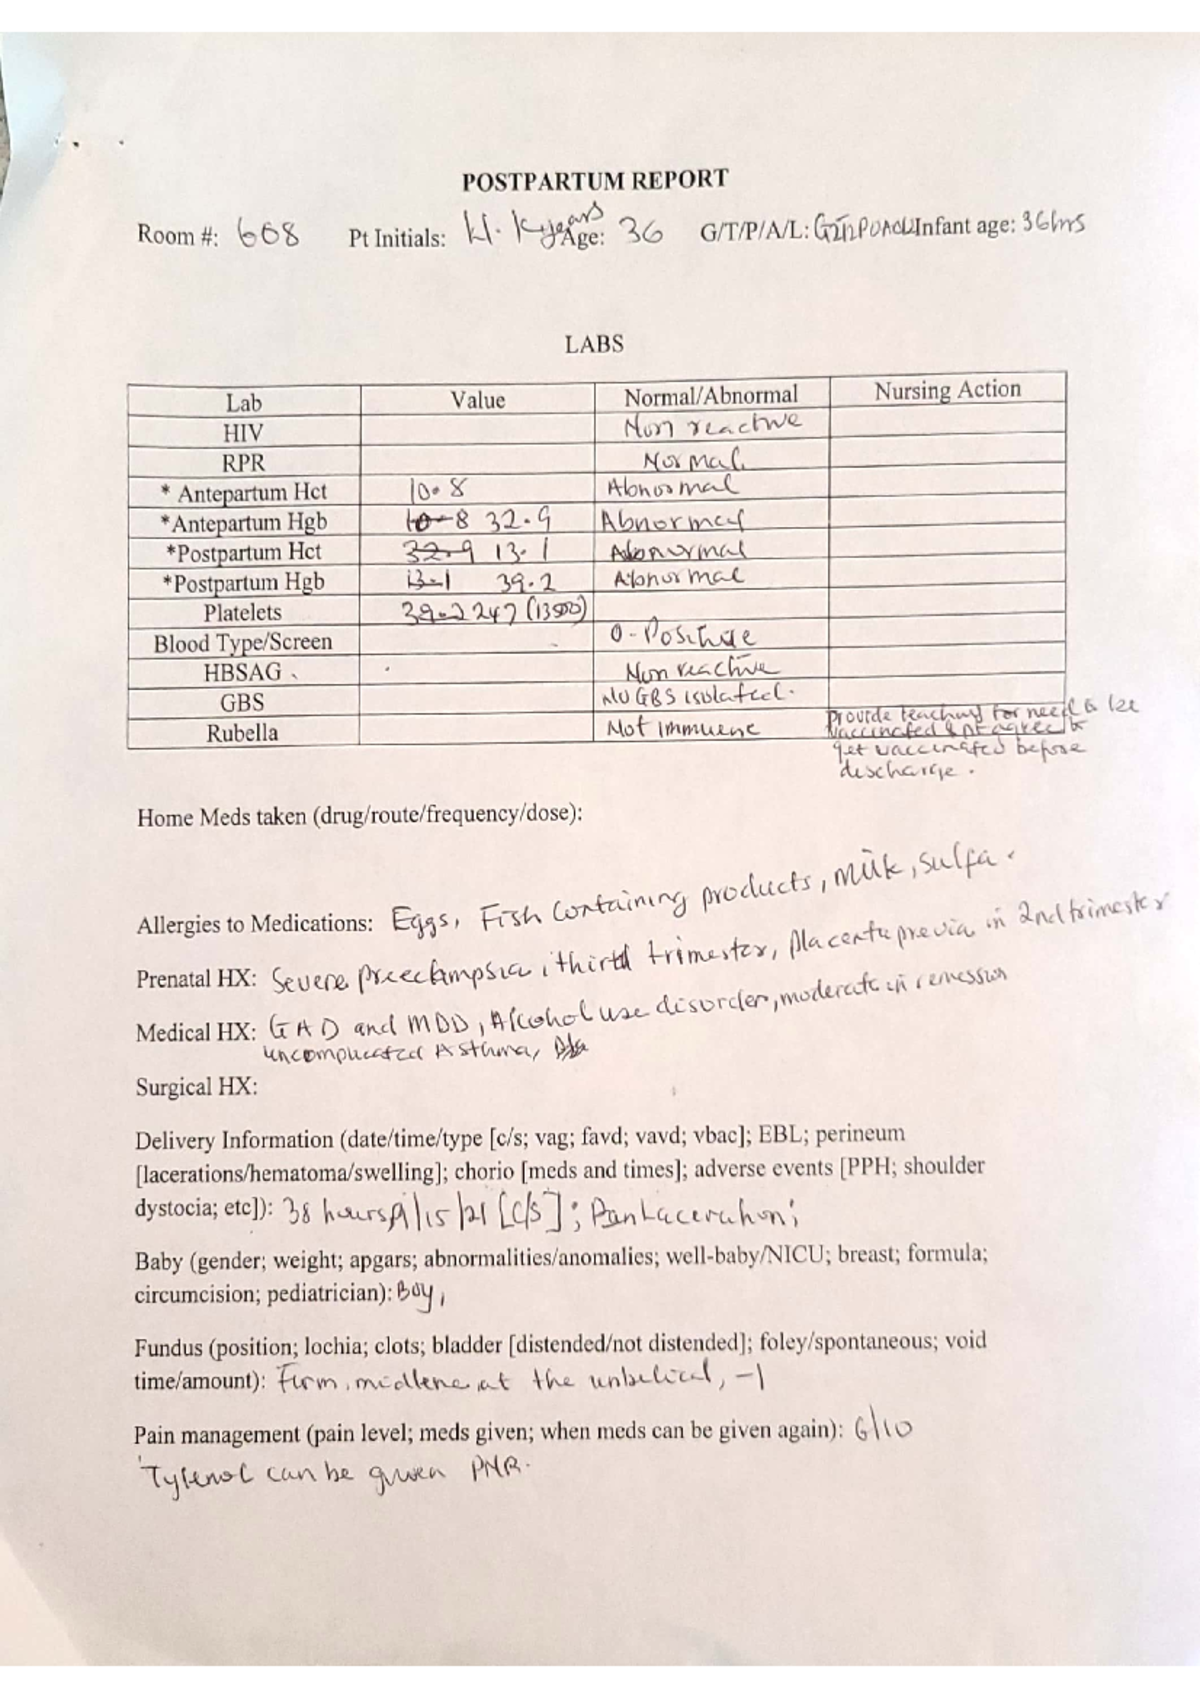 POSTPARTUM REPORT
Room #: 608 Pt Initials: K. K years Age: 36 G/T/P/A/L: Infant age: 36hrs
LABS
Lab Value Normal/Abnormal Nursing Action
HIV Non reactive
RPR Normal.
* Antepartum Hct 10.8 Abnormal
*Antepartum Hgb 10.8 32.9 Abnormal
*Postpartum Hct 32.9 13.1 Abnormal
*Postpartum Hgb 13.1 39.2 Abnormal
Platelets 39.2 247 (13500)
Blood Type/Screen O-Positive
HBSAG Non reactive
GBS No GBS isolated.
Rubella Not immuene Provide teaching for need to be
vaccinated & pt agree to
get vaccinated before
discharge.
Home Meds taken (drug/route/frequency/dose):
Allergies to Medications: Eggs, Fish containing products, milk, sulfa.
Prenatal HX: Severe preeclampsia, third trimester, placenta previa in 2nd trimester
Medical HX: GAD and MDD, Alcohol use disorder, moderate in remission
uncomplicated Asthma,
Surgical HX:
Delivery Information (date/time/type [c/s; vag; favd; vavd; vbac]; EBL; perineum
[lacerations/hematoma/swelling]; chorio [meds and times]; adverse events [PPH; shoulder
dystocia; etc]): 38 hours 9/15/21 [C/S]; Laceration;
Baby (gender; weight; apgars; abnormalities/anomalies; well-baby/NICU; breast; formula;
circumcision; pediatrician): Boy,
Fundus (position; lochia; clots; bladder [distended/not distended]; foley/spontaneous; void
time/amount): Firm, midlene, at the unbelical, -1
Pain management (pain level; meds given; when meds can be given again): 6/10
Tylenol can be given PNR.